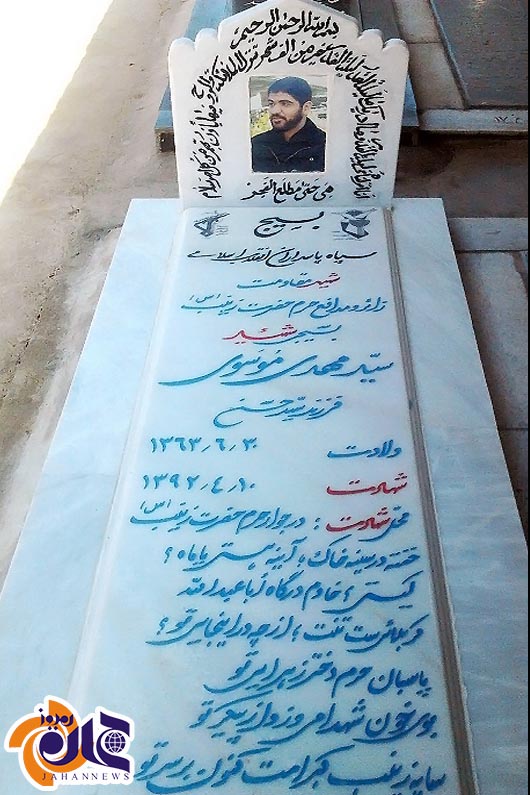 بسم الله الرحمن الرحیم
انا انزلناه فی لیلة القدر و ما ادریک ما لیلة القدر لیلة القدر خیر من الف شهر تنزل الملائکة و الروح فیها باذن ربهم من کل امر سلام
هی حتی مطلع الفجر
بسیج
سپاه پاسداران انقلاب اسلامی
شهید مقاومت
زائر و مدافع حرم حضرت زینب (س)
بسیجی شهید
سید مهدی موسوی
فرزند سید حسن
ولادت ۱۳۶۳٫۶٫۳۰
شهادت ۱۳۹۲٫۴٫۱۰
محل شهادت : در جوار حرم حضرت زینب (س)
خفته در سینه خاک ؛ آینه هستی یا ماه ؟
کیستی ؟ خادم درگاه أبا عبدالله
کربلائی ست تنت ؛ از چه در اینجایی تو ؟
پاسبان حرم دختر زهرایی تو
بوی خون شهدا می وزد از پیکر تو
سایه زینب کبراست کنون بر سر تو
جهان امروز
JAHANNEWS